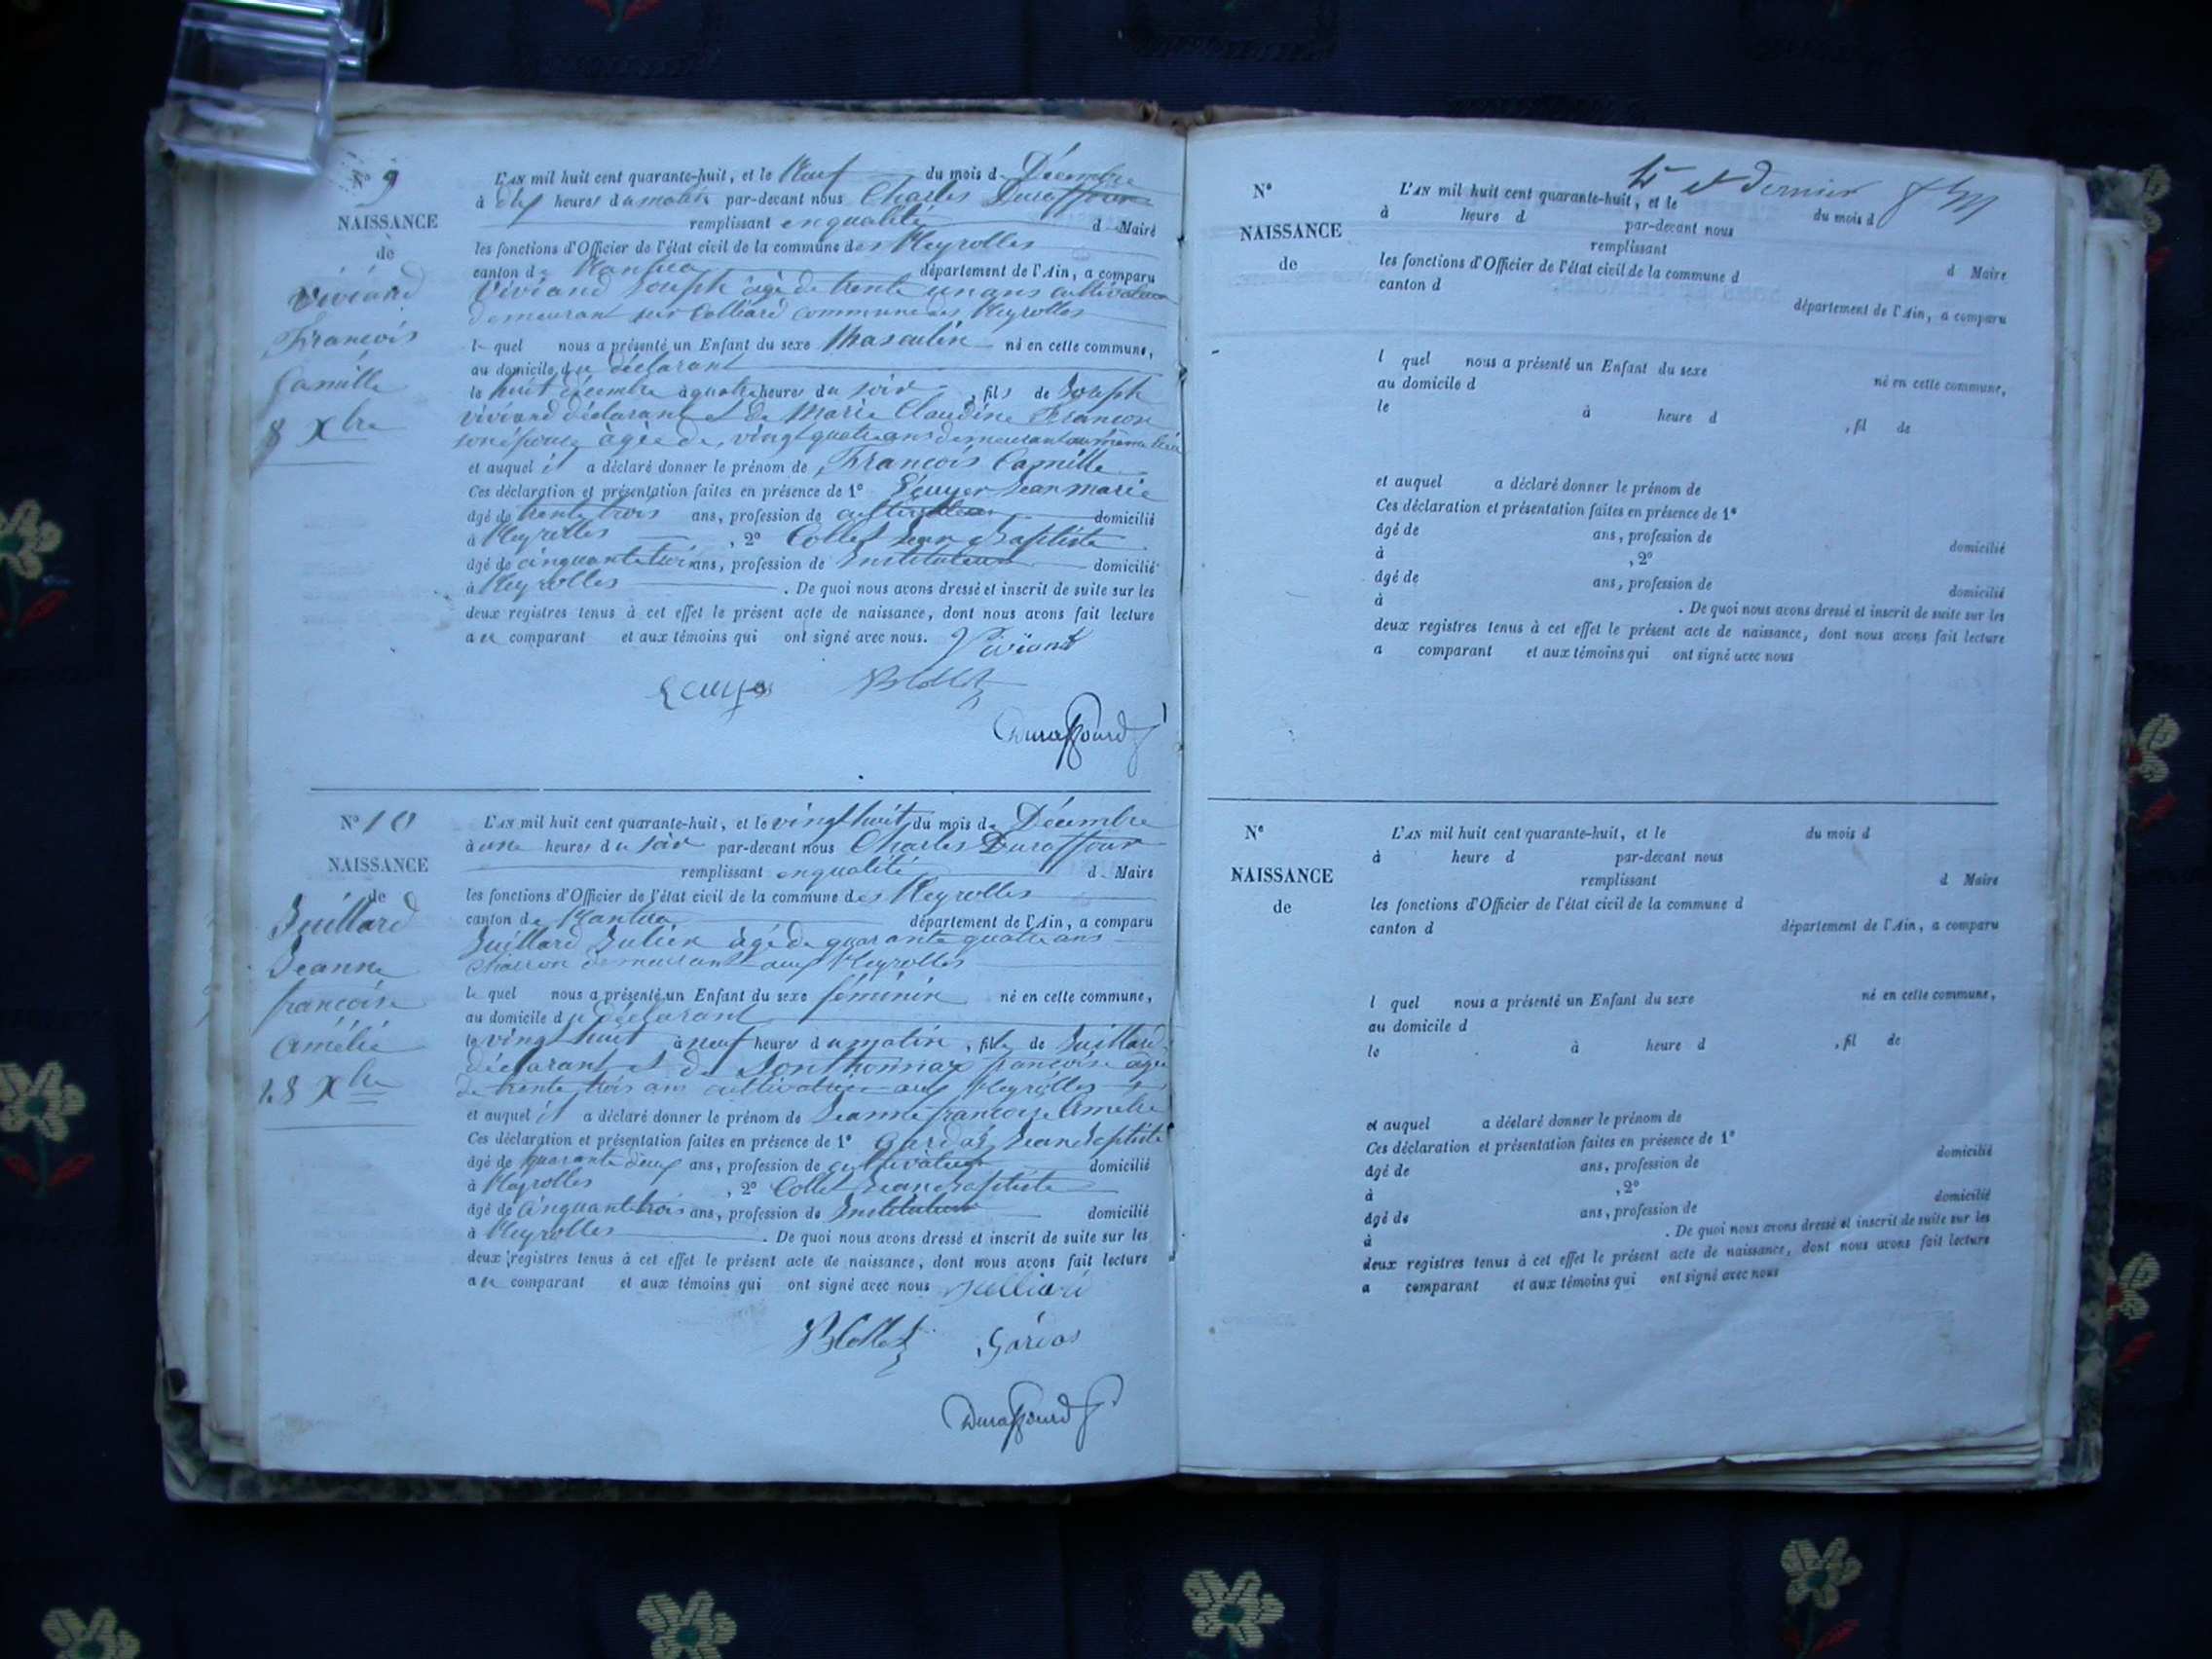 N° 9
NAISSANCE
de
Viviand
François
Camille
8 Xbre
L'AN mil huit cent quarante-huit, et le Neuf du mois de Décembre
à dix heures du matin par-devant nous Charles Duraffour
remplissant en qualité d Maire
les fonctions d'Officier de l'état civil de la commune des Neyrolles
canton de Nantua département de l'Ain, a comparu
Viviand Joseph âgé de trente un ans cultivateur
demeurant sur Colliard commune des Neyrolles
le quel nous a présenté un Enfant du sexe Masculin né en cette commune,
au domicile du déclarant
le huit décembre à quatre heures du soir, fils de Joseph
Viviand déclarant et de Marie Claudine Françon
son épouse âgée de vingt quatre ans demeurant au même lieu
et auquel il a déclaré donner le prénom de François Camille
Ces déclaration et présentation faites en présence de 1° Lécuyer Jean Marie
âgé de trente trois ans, profession de cultivateur domicilié
à Neyrolles, 2° Collet Jean Baptiste
âgé de cinquante trois ans, profession de Instituteur domicilié
à Neyrolles. De quoi nous avons dressé et inscrit de suite sur les
deux registres tenus à cet effet le présent acte de naissance, dont nous avons fait lecture
a ce comparant et aux témoins qui ont signé avec nous. Viviand
Lecuyer JBCollet
Duraffourd
N° 10
NAISSANCE
de
Juillard
Jeanne
françoise
Amélie
28 Xbre
L'AN mil huit cent quarante-huit, et le vingt huit du mois de Décembre
à une heures du soir par-devant nous Charles Duraffour
remplissant en qualité d Maire
les fonctions d'Officier de l'état civil de la commune des Neyrolles
canton de Nantua département de l'Ain, a comparu
Juillard Julien âgé de quarante quatre ans
charron demeurant aux Neyrolles
le quel nous a présenté un Enfant du sexe féminin né en cette commune,
au domicile du déclarant
le vingt huit à neuf heures du matin, fille de Juillard
déclarant et de Donthonnax françoise âgée
de trente trois ans cultivatrice aux Neyrolles
et auquel il a déclaré donner le prénom de Jeanne françoise Amélie
Ces déclaration et présentation faites en présence de 1° Gardaz Jean Baptiste
âgé de quarante deux ans, profession de cultivateur domicilié
à Neyrolles, 2° Collet Jean Baptiste
âgé de cinquante trois ans, profession de Instituteur domicilié
à Neyrolles. De quoi nous avons dressé et inscrit de suite sur les
deux registres tenus à cet effet le présent acte de naissance, dont nous avons fait lecture
a ce comparant et aux témoins qui ont signé avec nous
JBCollet Gardas
Duraffourd
et dernier
N°
NAISSANCE
de
L'AN mil huit cent quarante-huit, et le du mois d
à heure d par-devant nous
remplissant d Maire
les fonctions d'Officier de l'état civil de la commune d
canton d département de l'Ain, a comparu
l quel nous a présenté un Enfant du sexe né en cette commune,
au domicile d
le à heure d , fil de
et auquel a déclaré donner le prénom de
Ces déclaration et présentation faites en présence de 1°
âgé de ans, profession de domicilié
à , 2°
âgé de ans, profession de domicilié
à . De quoi nous avons dressé et inscrit de suite sur les
deux registres tenus à cet effet le présent acte de naissance, dont nous avons fait lecture
a comparant et aux témoins qui ont signé avec nous
N°
NAISSANCE
de
L'AN mil huit cent quarante-huit, et le du mois d
à heure d par-devant nous
remplissant d Maire
les fonctions d'Officier de l'état civil de la commune d
canton d département de l'Ain, a comparu
l quel nous a présenté un Enfant du sexe né en cette commune,
au domicile d
le à heure d , fil de
et auquel a déclaré donner le prénom de
Ces déclaration et présentation faites en présence de 1°
âgé de ans, profession de domicilié
à , 2°
âgé de ans, profession de domicilié
à . De quoi nous avons dressé et inscrit de suite sur les
deux registres tenus à cet effet le présent acte de naissance, dont nous avons fait lecture
a comparant et aux témoins qui ont signé avec nous